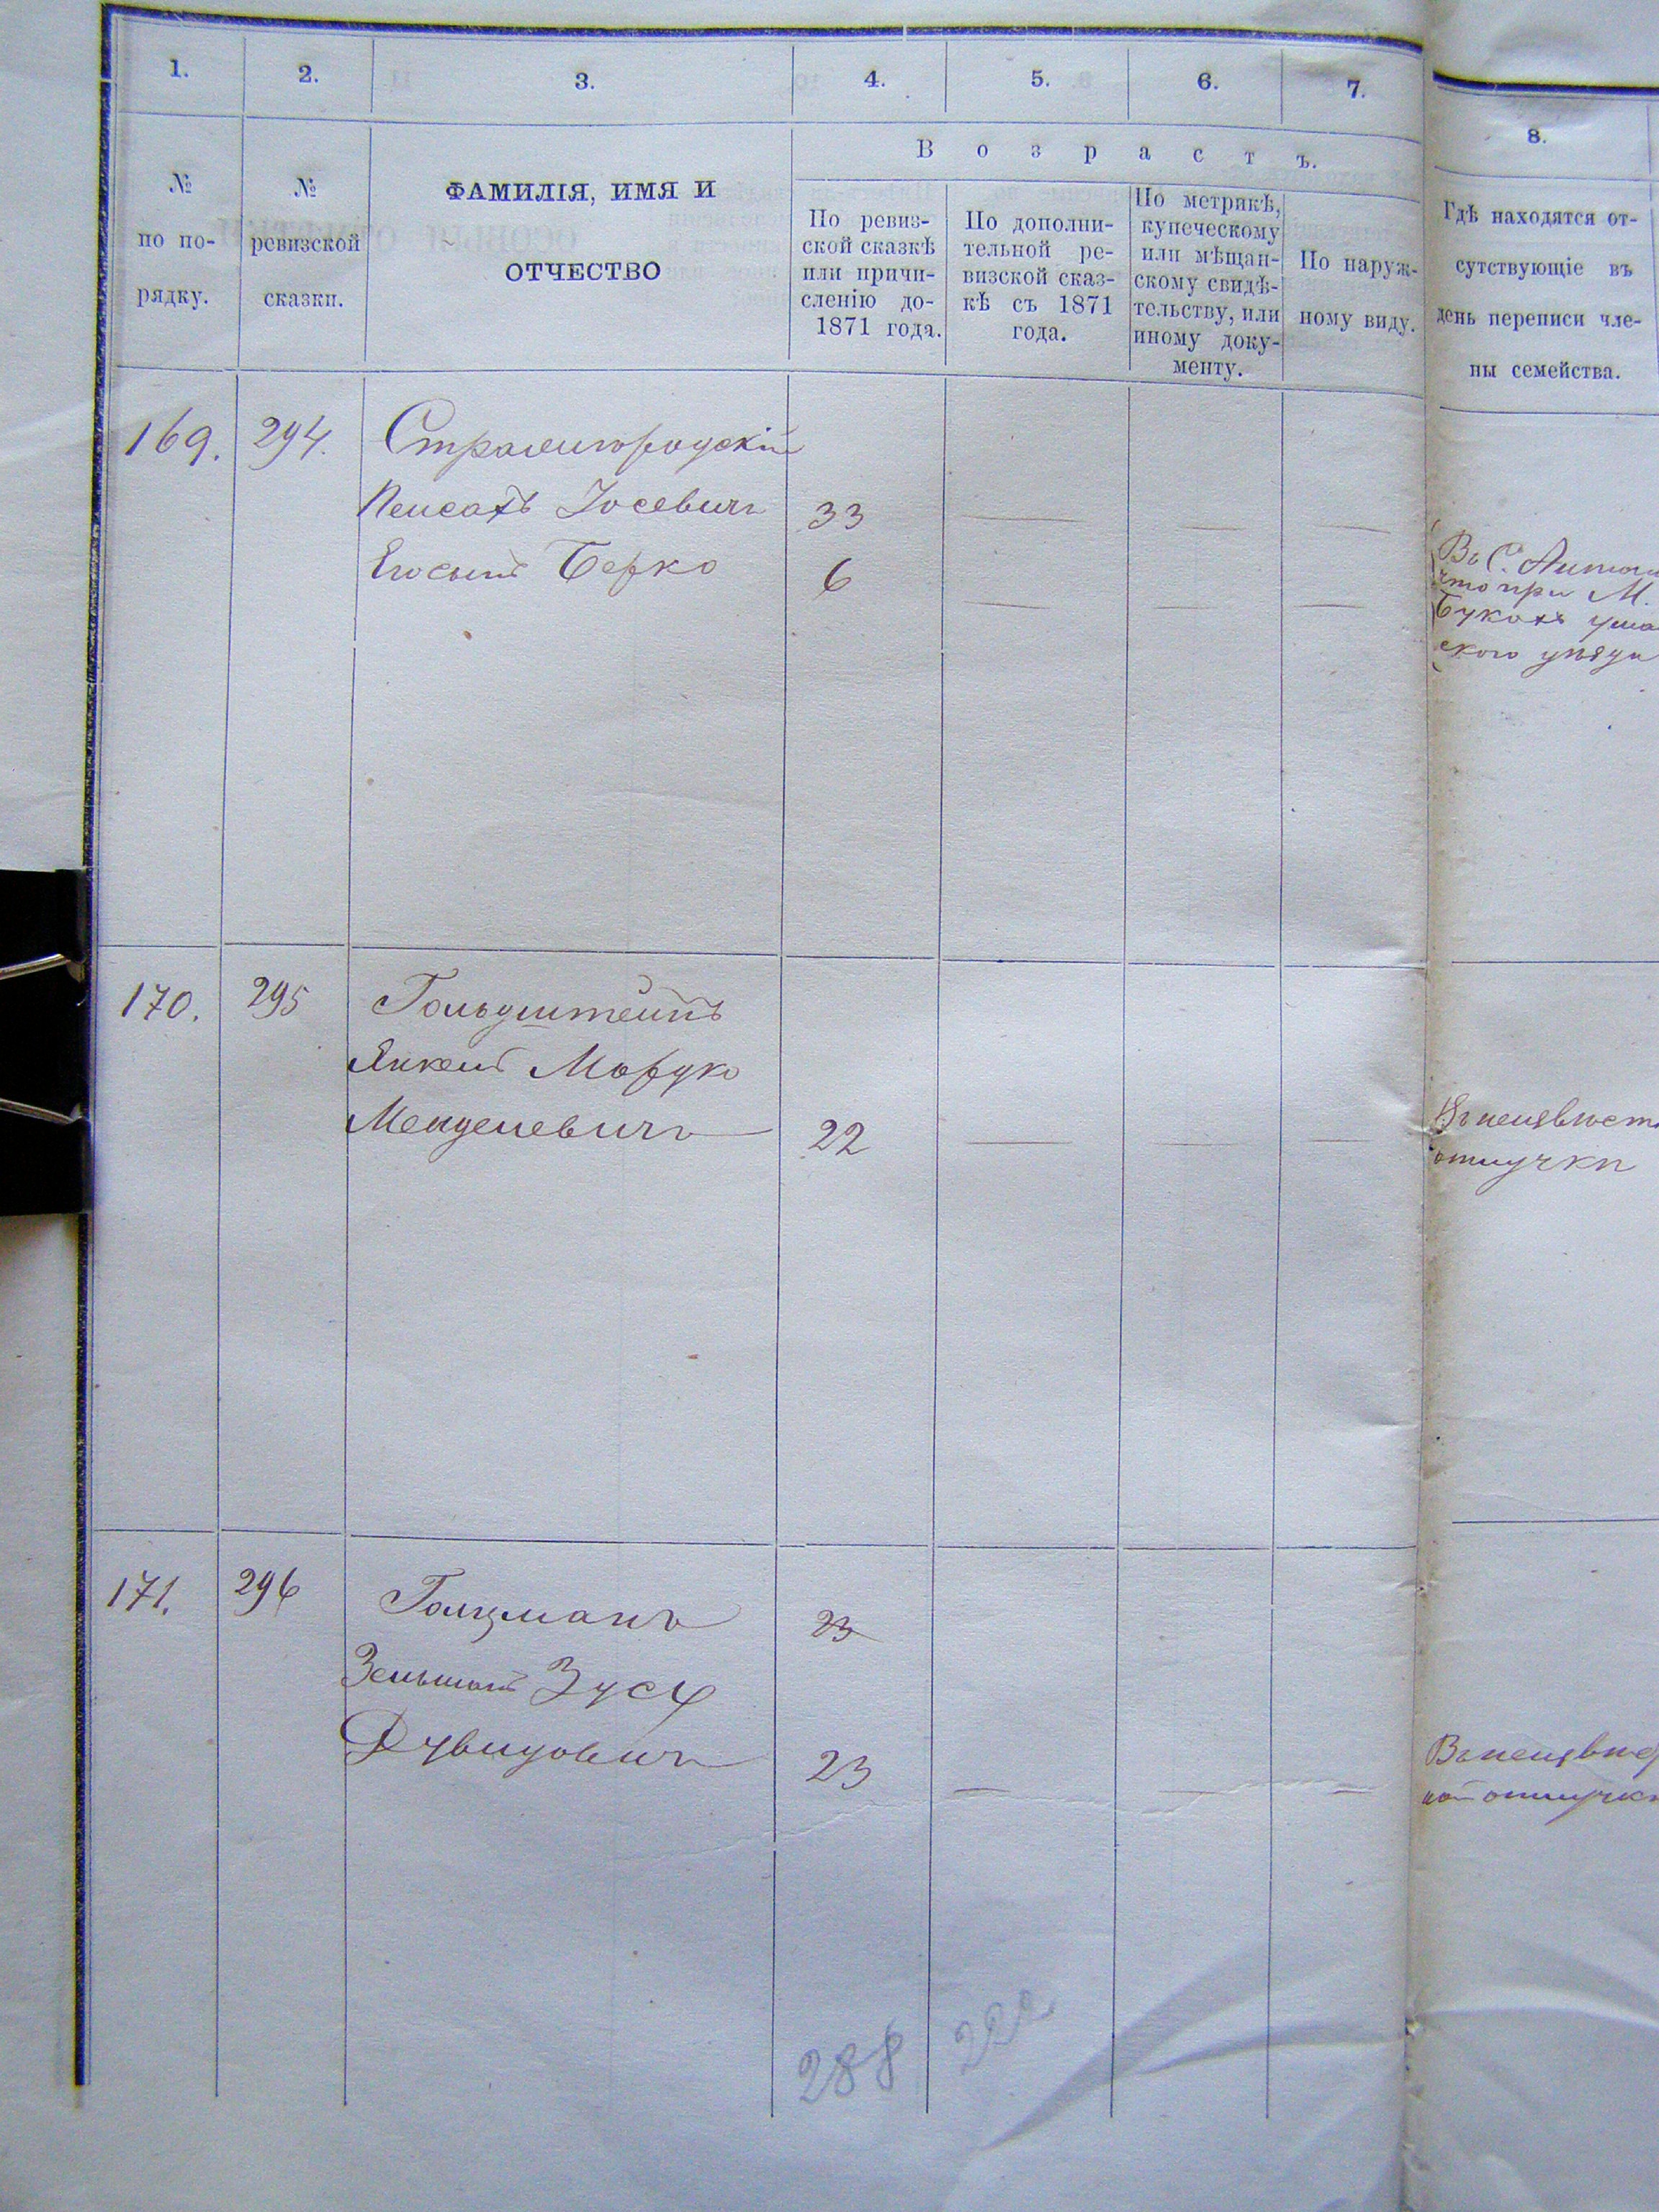 1. 2. 3. 4. 5. 6. 7. 8.
№ по по-рядку.
№ ревизской сказки.
ФАМИЛІЯ, ИМЯ И
ОТЧЕСТВО
Возрастъ.
По ревиз-
ской сказкѣ
или причи-
сленію до-
1871 года.
По дополни-
тельной ре-
визской сказ-
кѣ съ 1871
года.
По метрикѣ,
купеческому
или мѣщан-
скому свидѣ-
тельству, или
иному доку-
менту.
По наруж-
ному виду.
Гдѣ находятся от-
сутствующіе въ
день переписи чле-
ны семейства.
169. 294.
Пейсахъ Іосевичъ 33
Его сынъ Берко 6
Въ С.
что при М.
170. 295 Гольдштейнъ
Янкель Мордко
Менделевичъ 22
отлучки
171. 296 Голцманъ 23
Зельманъ Зусь
Дувидовичъ 23
288